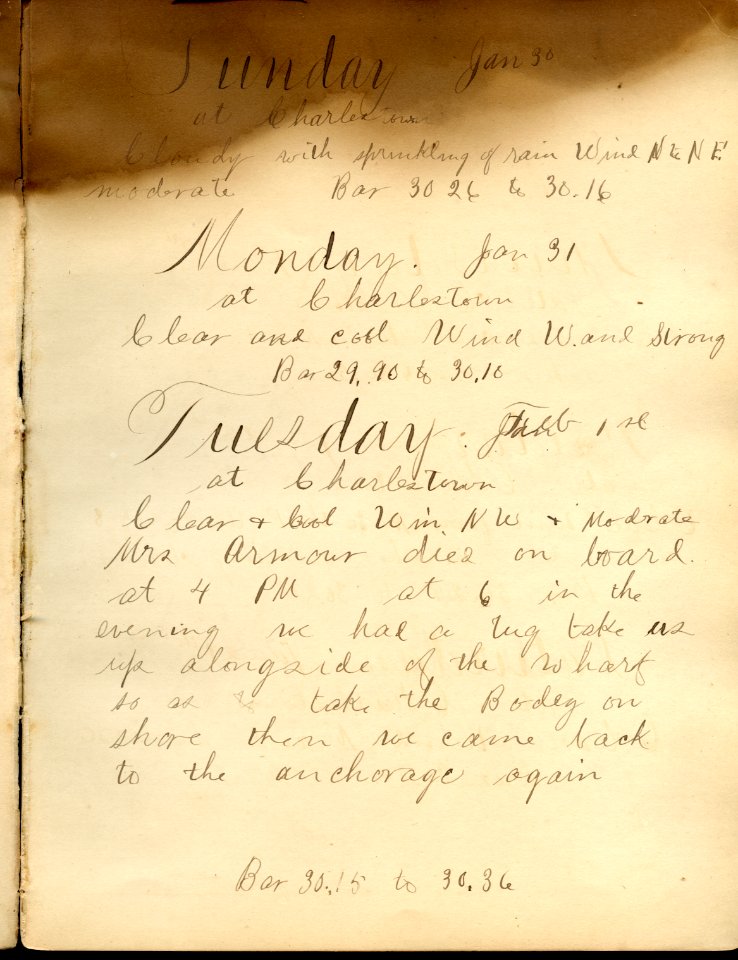 Sunday Jan 30
at Charlestown
Cloudy with sprinkling of rain Wind N & N E
moderate Bar 30 26 to 30.16
Monday. Jan 31
at Charlestown
Clear and cool Wind W. and Strong
Bar 29.90 to 30.10
Tuesday. Feb 1 st
at Charlestown
Clear & Cool Win NW & Moderate
Mrs Armour dies on board.
at 4 PM at 6 in the
evening we had a tug take us
up alongside of the wharf
so as to take the Bodey on
shore then we came back
to the anchorage again
Bar 30.15 to 30.36